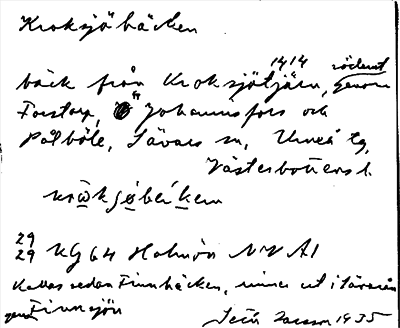 Kroksjöbäcken
1414 söderut
bäck från Kroksjötjärn, genom
Forstorp, Johannisfors och
Pålböle, Sävars sn, Umeå tg,
Västerbottens l.
29
29 KG 64 Holmön NV A1
Kallas sedan Finnbäcken, rinner ut i Sävarån
genom Finnsjön
1935